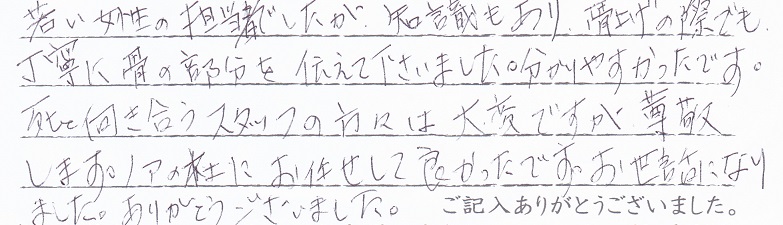 若い女性の担当者でしたが、知識もあり、骨上げの際でも、
丁寧に骨の部分を伝えて下さいました。分かりやすかったです。
死と向き合うスタッフの方々は大変ですが、尊敬
します。ノアの杜にお任せして良かったです。お世話になり
ました。ありがとうございました。 ご記入ありがとうございました。